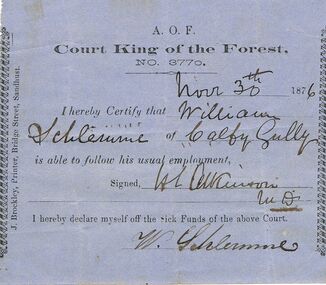 A. O. F.
Court King of the Forest,
NO. 3770.
Novr 30th 1876
I hereby Certify that William
Schlemme of Calfy Gully
is able to follow his usual employment,
Signed, H L Atkinson
M D
I hereby declare myself off the Sick Funds of the above Court.
W. Schlemme
J. Brockley, Printer, Bridge Street, Sandhurst.